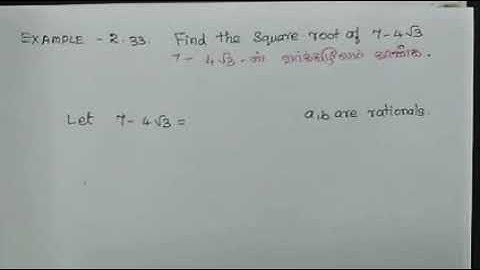 EXAMPLE - 2.33. Find the Square root of 7-4√3
7 - 4√3 -ன் வர்க்கமூலம் காண்க.
Let 7-4√3 = a,b are rationals.